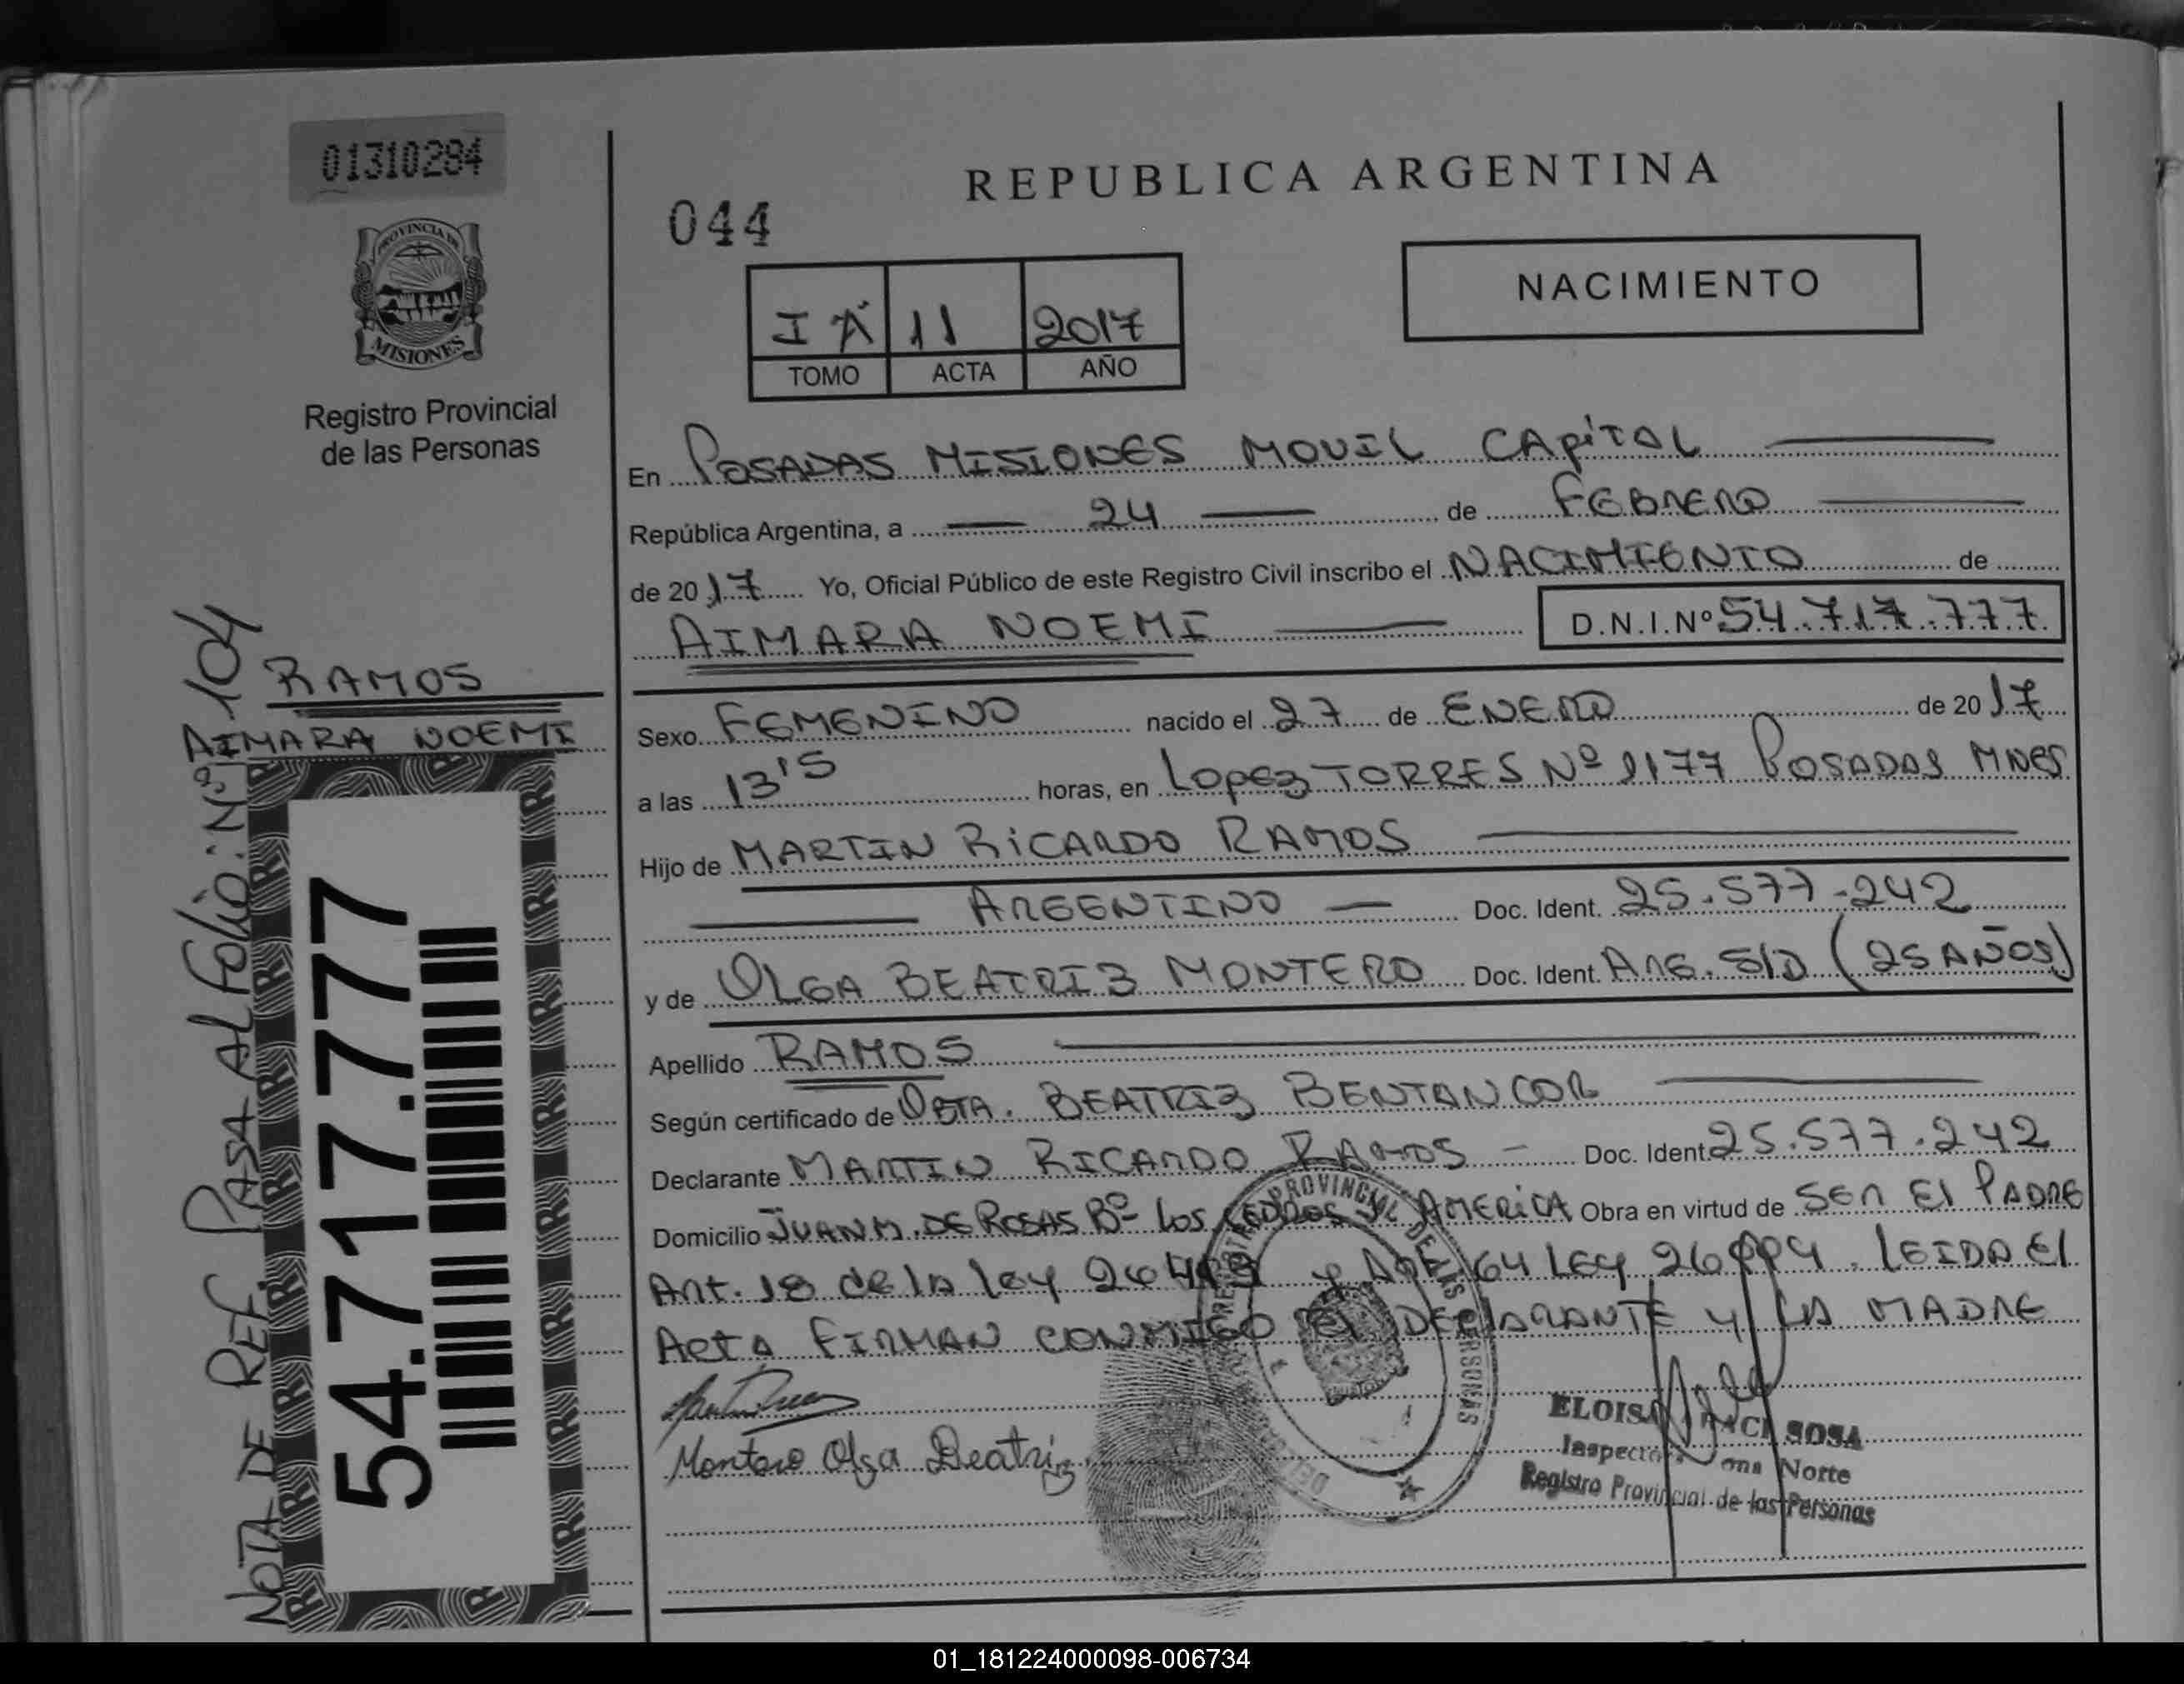 01310284
PROVINCIA DE
MISIONES
Registro Provincial
de las Personas
RAMOS
AIMARA NOEMI
54.717.777
NOTA DE REF. PASA AL Folio: Nº 104
044
REPUBLICA ARGENTINA
NACIMIENTO
I A 11 2017
TOMO ACTA AÑO
En POSADAS MISIONES MOVIL CAPITAL
República Argentina, a 24 de FEBRERO
de 2017 Yo, Oficial Público de este Registro Civil inscribo el NACIMIENTO de
AIMARA NOEMI D.N.I.Nº 54.717.777
Sexo FEMENINO nacido el 27 de ENERO de 2017
a las 13'5 horas, en Lopez TORRES Nº 1177 POSADAS MNES
Hijo de MARTIN RICARDO RAMOS
ARGENTINO Doc. Ident. 25.577.242
y de OLGA BEATRIZ MONTERO Doc. Ident. ARG. S/D (25 AÑOS)
Apellido RAMOS
Según certificado de OBTA. BEATRIZ BENTANCOR
Declarante MARTIN RICARDO RAMOS Doc. Ident. 25.577.242
Domicilio JUAN M. DE ROSAS Bº Los CEDROS AMERICA Obra en virtud de SER El PADRE
Art. 18 de la ley 26413 y 64 LEY 26994. LEIDA El
Acta FIRMAN CONMIGO El DEClARANTE y LA MADRE
Montero Olga Beatriz
PROVINCIAL DE LAS PERSONAS
ELOISA SOSA
Inspectora Norte
Registro Provincial de las Personas
01_181224000098-006734